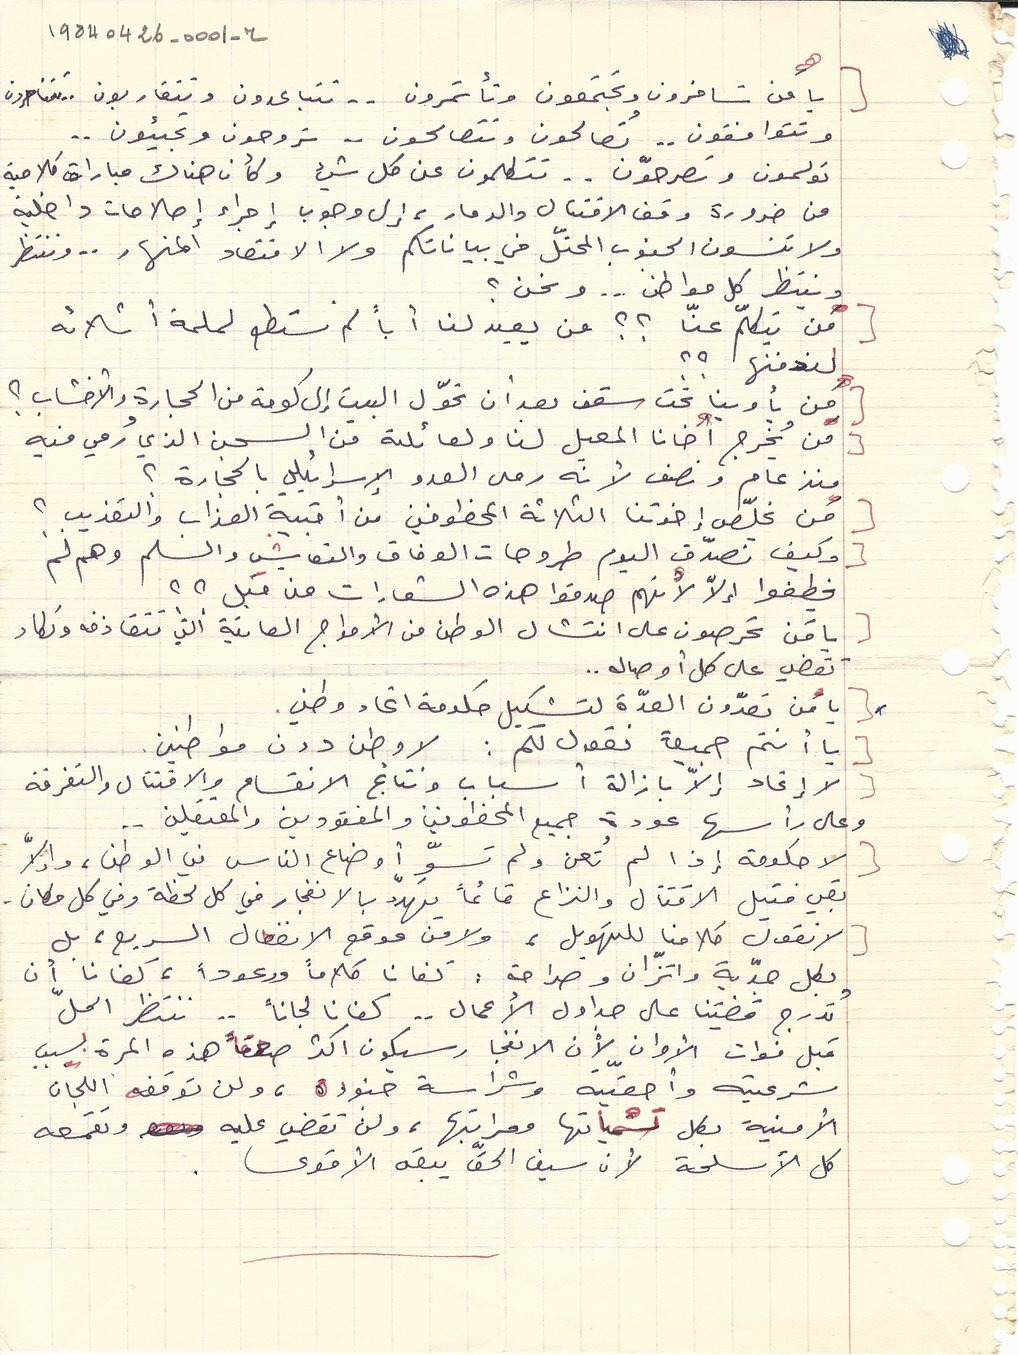 19840426-0001-2
يا مَن تسافرون وتجتمعون وتأتمرون .. تتباعدون وتتقاربون .. تتناحرون
وتتوافقون .. تُصالحون وتتصالحون .. تروحون وتجيئون ..
تولمون وتصرحّون .. تتكلمون عن كل شيء وكأن هناك مباراة كلامية
من ضرورة وقف الاقتتال والدمار، إلى وجوب إجراء إصلاحات داخلية
ولا تنسون الجنوب المحتلّ في بياناتكم ولا الاقتصاد المنهار .. وننتظر
وينتظر كل مواطن .. ونحن ؟
مَن يتكلّم عنّا ؟؟ من يعيد لنا أباً لم نستطع لملمة أشلائه
لندفنها ؟؟
مَن يأوينا تحت سقف بعد أن تحوّل البيت إلى كومة من الحجارة والأخشاب ؟
مَن يُخرج أخانا المعيل لنا ولعائلته من السجن الذي رُمي فيه
منذ عام ونصف لأنه رمى العدو الإسرائيلي بالحجارة ؟
مَن يخلّص إخوتنا الثلاثة المخطوفين من أقبية العذاب والتعذيب ؟
وكيف نصدّق اليوم طروحات الوفاق والتعايش والسلم وهم لم
يخطفوا إلاّ لأنهم صدقوا هذه الشعارات من قبل ؟؟
يا مَن تحرصون على انتشال الوطن من الأمواج العاتية التي تتقاذفه وتكاد
تقضي على كل أوصاله ..
يا مَن تعدّون العدّة لتشكيل حكومة اتحاد وطني.
يا أنتم جميعاً نقول لكم : لا وطن دون مواطنين.
لا إتحاد إلاّ بإزالة أسباب ونتائج الانقسام والاقتتال والتفرقة
وعلى رأسها عودة جميع المخطوفين والمفقودين والمعتقلين ..
لا حكومة إذا لم تُعن ولم تسوِّ أوضاع الناس في الوطن، وإلاّ
بقي فتيل الاقتتال والنزاع قائماً يهدّد بالانفجار في كل لحظة وفي كل مكان.
لا نقول كلامنا للتهويل، ولا من موقع الانفعال السريع، بل
بكل جدّية واتزّان وصراحة : كفانا كلاماً ووعوداً، كفانا أن
تُدرج قضيتنا على جداول الأعمال .. كفانا لجاناً .. ننتظر الحلّ
قبل فوات الأوان لأن الانفجار سيكون أكثر هذه المرة بسبب
شرعيته وأحقيّته وشراسة جنوده، ولن توقفه اللجان
الأمنية بكل تسمياتها ومراتبها، ولن تقضي عليه وتقمعه
كل الأسلحة لأن سيف الحقّ يبقى الأقوى.